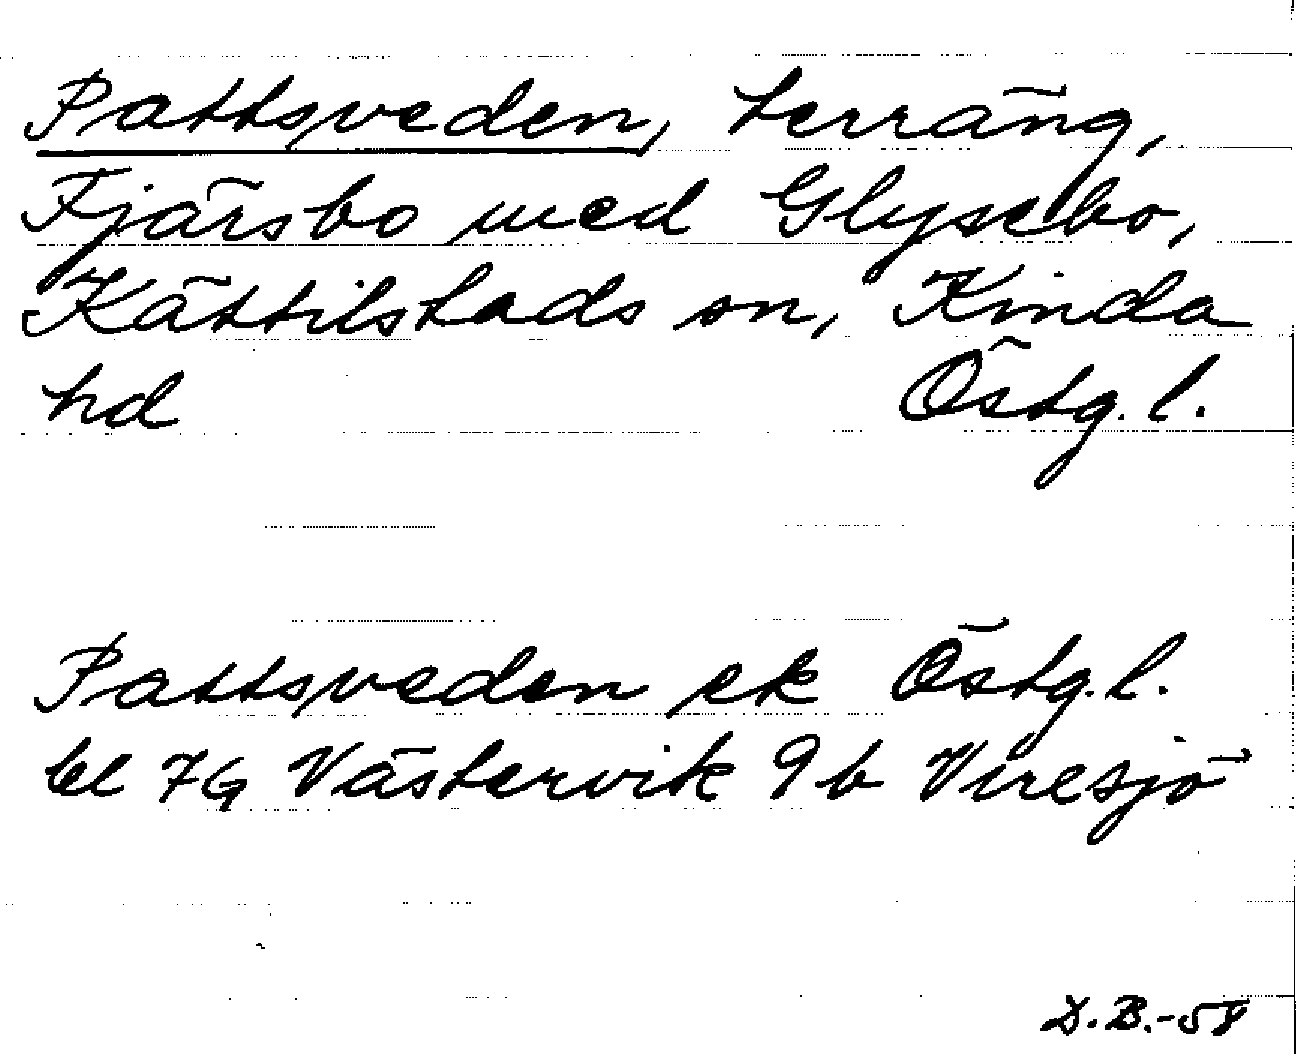 Pattsveden, terräng,
Fjärsbo med Glysebo,
Kättilstads sn, Kinda
hd Östg. l.
Pattsveden ek Östg. l.
bl 7G Västervik 9b Viresjö
D.B.-58